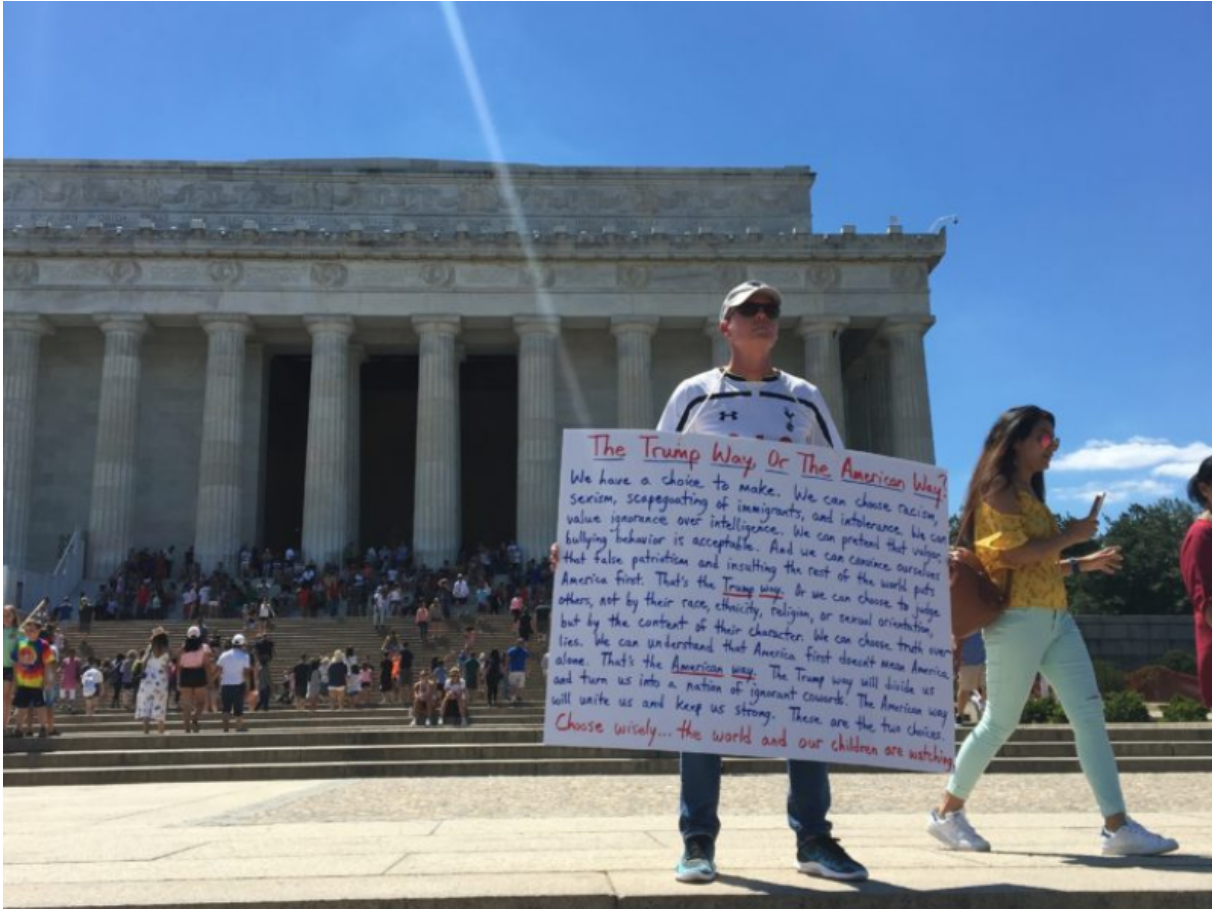 The Trump Way, Or The American Way?
We have a choice to make. We can choose racism,
sexism, scapegoating of immigrants, and intolerance. We can
value ignorance over intelligence. We can pretend that vulgar,
bullying behavior is acceptable. And we can convince ourselves
that false patriotism and insulting the rest of the world puts
America first. That's the Trump way. Or we can choose to judge
others, not by their race, ethnicity, religion, or sexual orientation,
but by the content of their character. We can choose truth over
lies. We can understand that America first doesn't mean America
alone. That's the American way. The Trump way will divide us
and turn us into a nation of ignorant cowards. The American way
will unite us and keep us strong. These are the two choices.
Choose wisely... the world and our children are watching